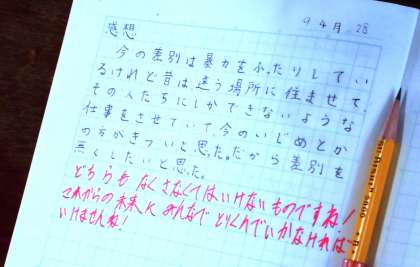 9 4月 28
感想
今の差別は暴力をふったりしてい
るけれど昔は違う場所に住ませて、
その人たちにしかできないような
仕事をさせていて、今のいじめとか
の方がきついと思った。だから差別を
無くしたいと思った。
どちらも なくさなくてはいけないものですね!
これからの未来に みんなで とりくんでいかなければ
いけませんね!